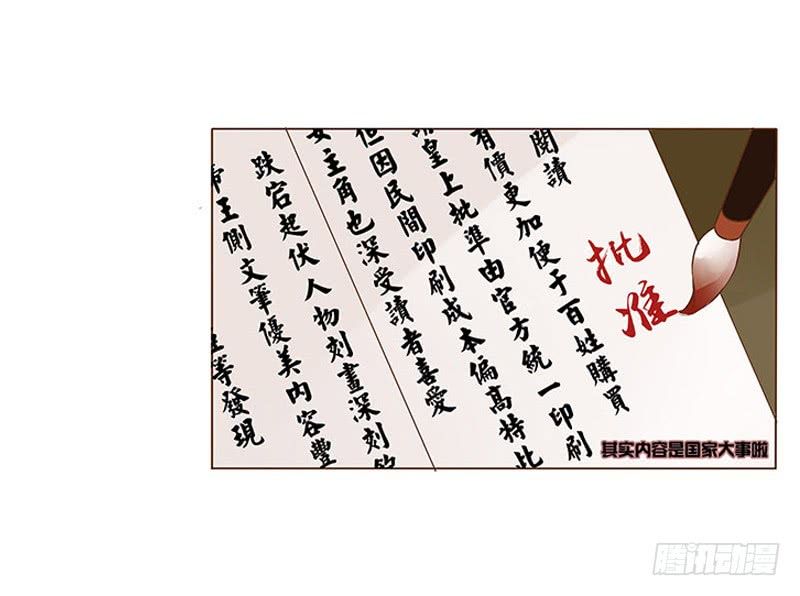 等發現
帝王側文筆優美內容豐
跌宕起伏人物刻畫深刻
女主角也深受讀者喜愛
但因民間印刷成本偏高特此
請皇上批準由官方統一印刷
有價更加便于百姓購買
閱讀
批准
其实内容是国家大事啦
腾讯动漫